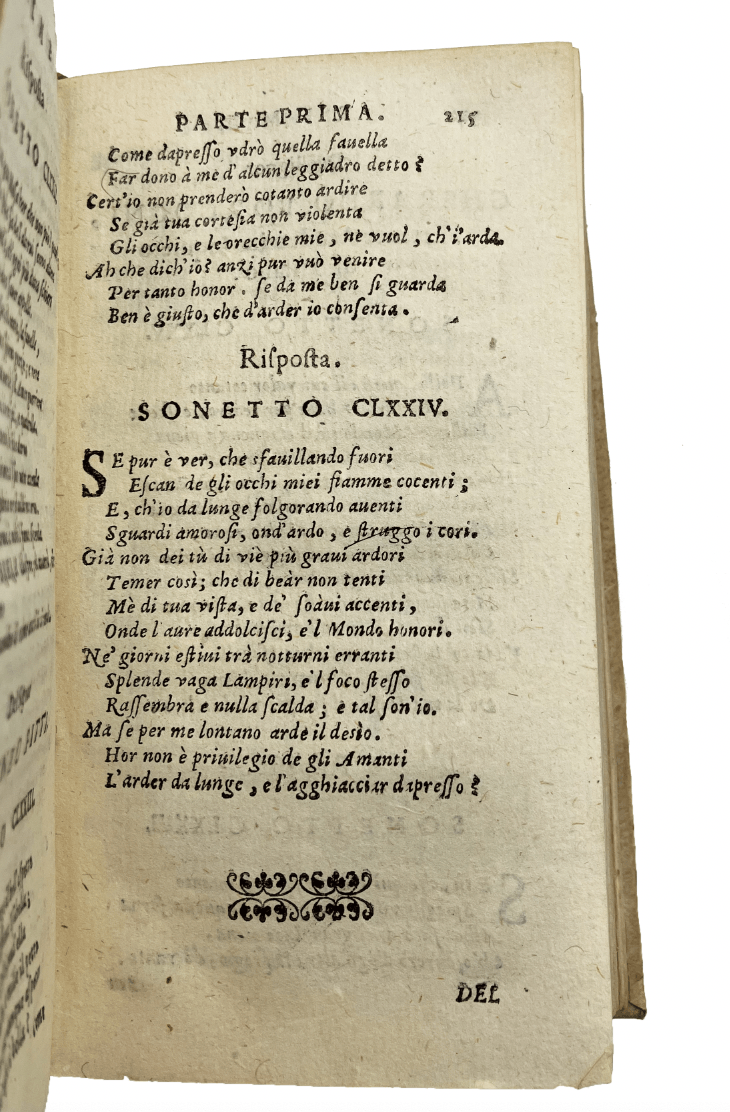 PARTE PRIMA. 215
Come dapreſſo vdrò quella fauella
Far dono à me d'alcun leggiadro detto?
Cert'io non prenderò cotanto ardire
Se già tua corteſia non violenta
Gli occhi, e le orecchie mie, nè vuol, ch'i'arda.
Ah che dich'io? anzi pur vuò venire
Per tanto honor. ſe da me ben ſi guarda
Ben è giuſto, che d'arder io conſenta.
Riſpoſta.
SONETTO CLXXIV.
SE pur è ver, che sfauillando fuori
Eſcan de gli occhi miei fiamme cocenti;
E, ch'io da lunge folgorando auenti
Sguardi amoroſi, ond'ardo, e ſtruggo i cori.
Già non dei tù di viè più graui ardori
Temer così; che di beàr non tenti
Mè di tua viſta, e de' ſoàui accenti,
Onde l'aure addolciſci, e'l Mondo honori.
Ne' giorni eſtiui trà notturni erranti
Splende vaga Lampiri, e'l foco ſteſſo
Raſſembra e nulla ſcalda; e tal ſon'io.
Ma ſe per me lontano arde il desìo.
Hor non è priuilegio de gli Amanti
L'arder da lunge, e l'agghiacciar dapreſſo?
DEL